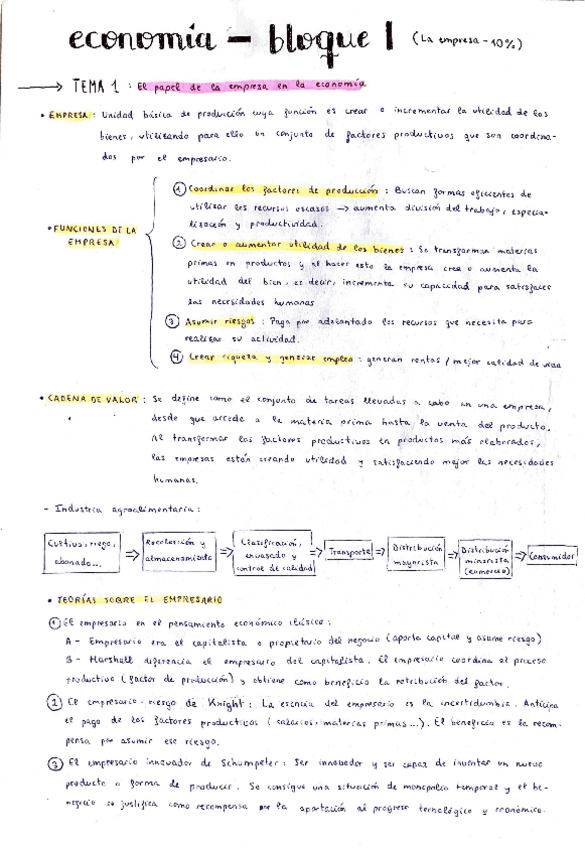 economía - bloque 1 (La empresa - 10%)
→ TEMA 1 : El papel de la empresa en la economía
• EMPRESA : Unidad básica de producción cuya función es crear o incrementar la utilidad de los
bienes, utilizando para ello un conjunto de factores productivos que son coordina-
dos por el empresario.
• FUNCIONES DE LA
EMPRESA
① Coordinar los factores de producción : Buscan formas eficientes de
utilizar los recursos escasos → aumenta división del trabajo, especia-
lización y productividad.
② Crear o aumentar utilidad de los bienes : Se transforman materias
primas en productos y al hacer esto la empresa crea o aumenta la
utilidad del bien, es decir, incrementa su capacidad para satisfacer
las necesidades humanas
③ Asumir riesgos : Paga por adelantado los recursos que necesita para
realizar su actividad.
④ Crear riqueza y generar empleo : generan rentas / mejor calidad de vida
• CADENA DE VALOR : Se define como el conjunto de tareas llevadas a cabo en una empresa,
desde que accede a la materia prima hasta la venta del producto.
Al transformar los factores productivos en productos más elaborados,
las empresas están creando utilidad y satisfaciendo mejor las necesidades
humanas.
- Industria agroalimentaria :
Cultivo, riego,
abonado...
⇒ Recolección y
almacenamiento
⇒ Clasificación,
envasado y
control de calidad
⇒ Transporte
⇒ Distribución
mayorista
⇒ Distribución
minorista
(comercio)
⇒ Consumidor
• TEORÍAS SOBRE EL EMPRESARIO
① El empresario en el pensamiento económico clásico :
A - Empresario era el capitalista o propietario del negocio (aporta capital y asume riesgo)
B - Marshall diferencia el empresario del capitalista. El empresario coordina el proceso
productivo (factor de producción) y obtiene como beneficio la retribución del factor.
② El empresario - riesgo de Knight : La esencia del empresario es la incertidumbre. Anticipa
el pago de los factores productivos (salarios, materias primas...). El beneficio es la recom-
pensa por asumir ese riesgo.
③ El empresario innovador de Schumpeter : Ser innovador y ser capaz de inventar un nuevo
producto o forma de producir. Se consigue una situación de monopolio temporal y el be-
neficio se justifica como recompensa por la aportación al progreso tecnológico y económico.